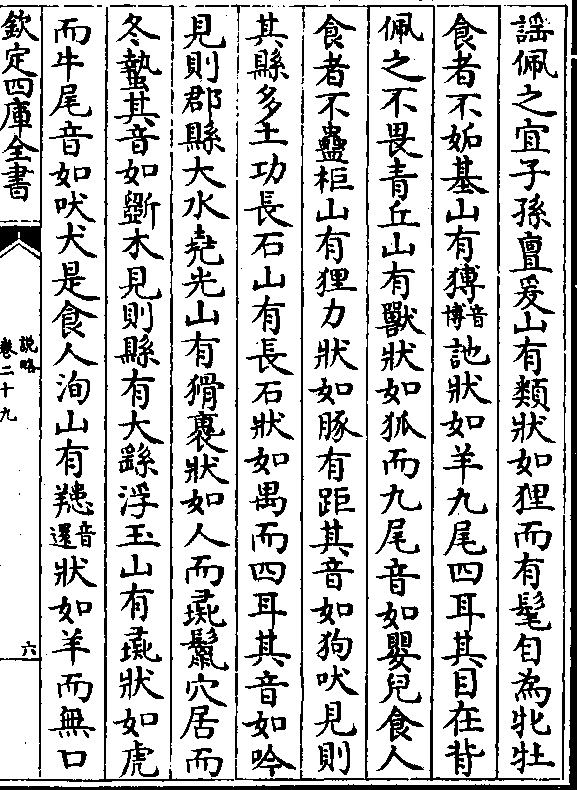 謡佩之宜子孫亶爰山有類狀如狸而有髦自為牝牡
食者不妬基山有猼音博訑狀如羊九尾四耳其目在背
佩之不畏青丘山有獸狀如狐而九尾音如嬰兒食人
食者不蠱柜山有狸力狀如豚有距其音如狗吠見則
其縣多土功長石山有長石狀如禺而四耳其音如吟
見則郡縣大水堯光山有猾褢狀如人而彘鬛穴居而
冬蟄其音如斵木見則縣有大繇浮玉山有彘狀如虎
而牛尾音如吠犬是食人洵山有䍺音還狀如羊而無口
欽定四庫全書
說略
卷二十九
六